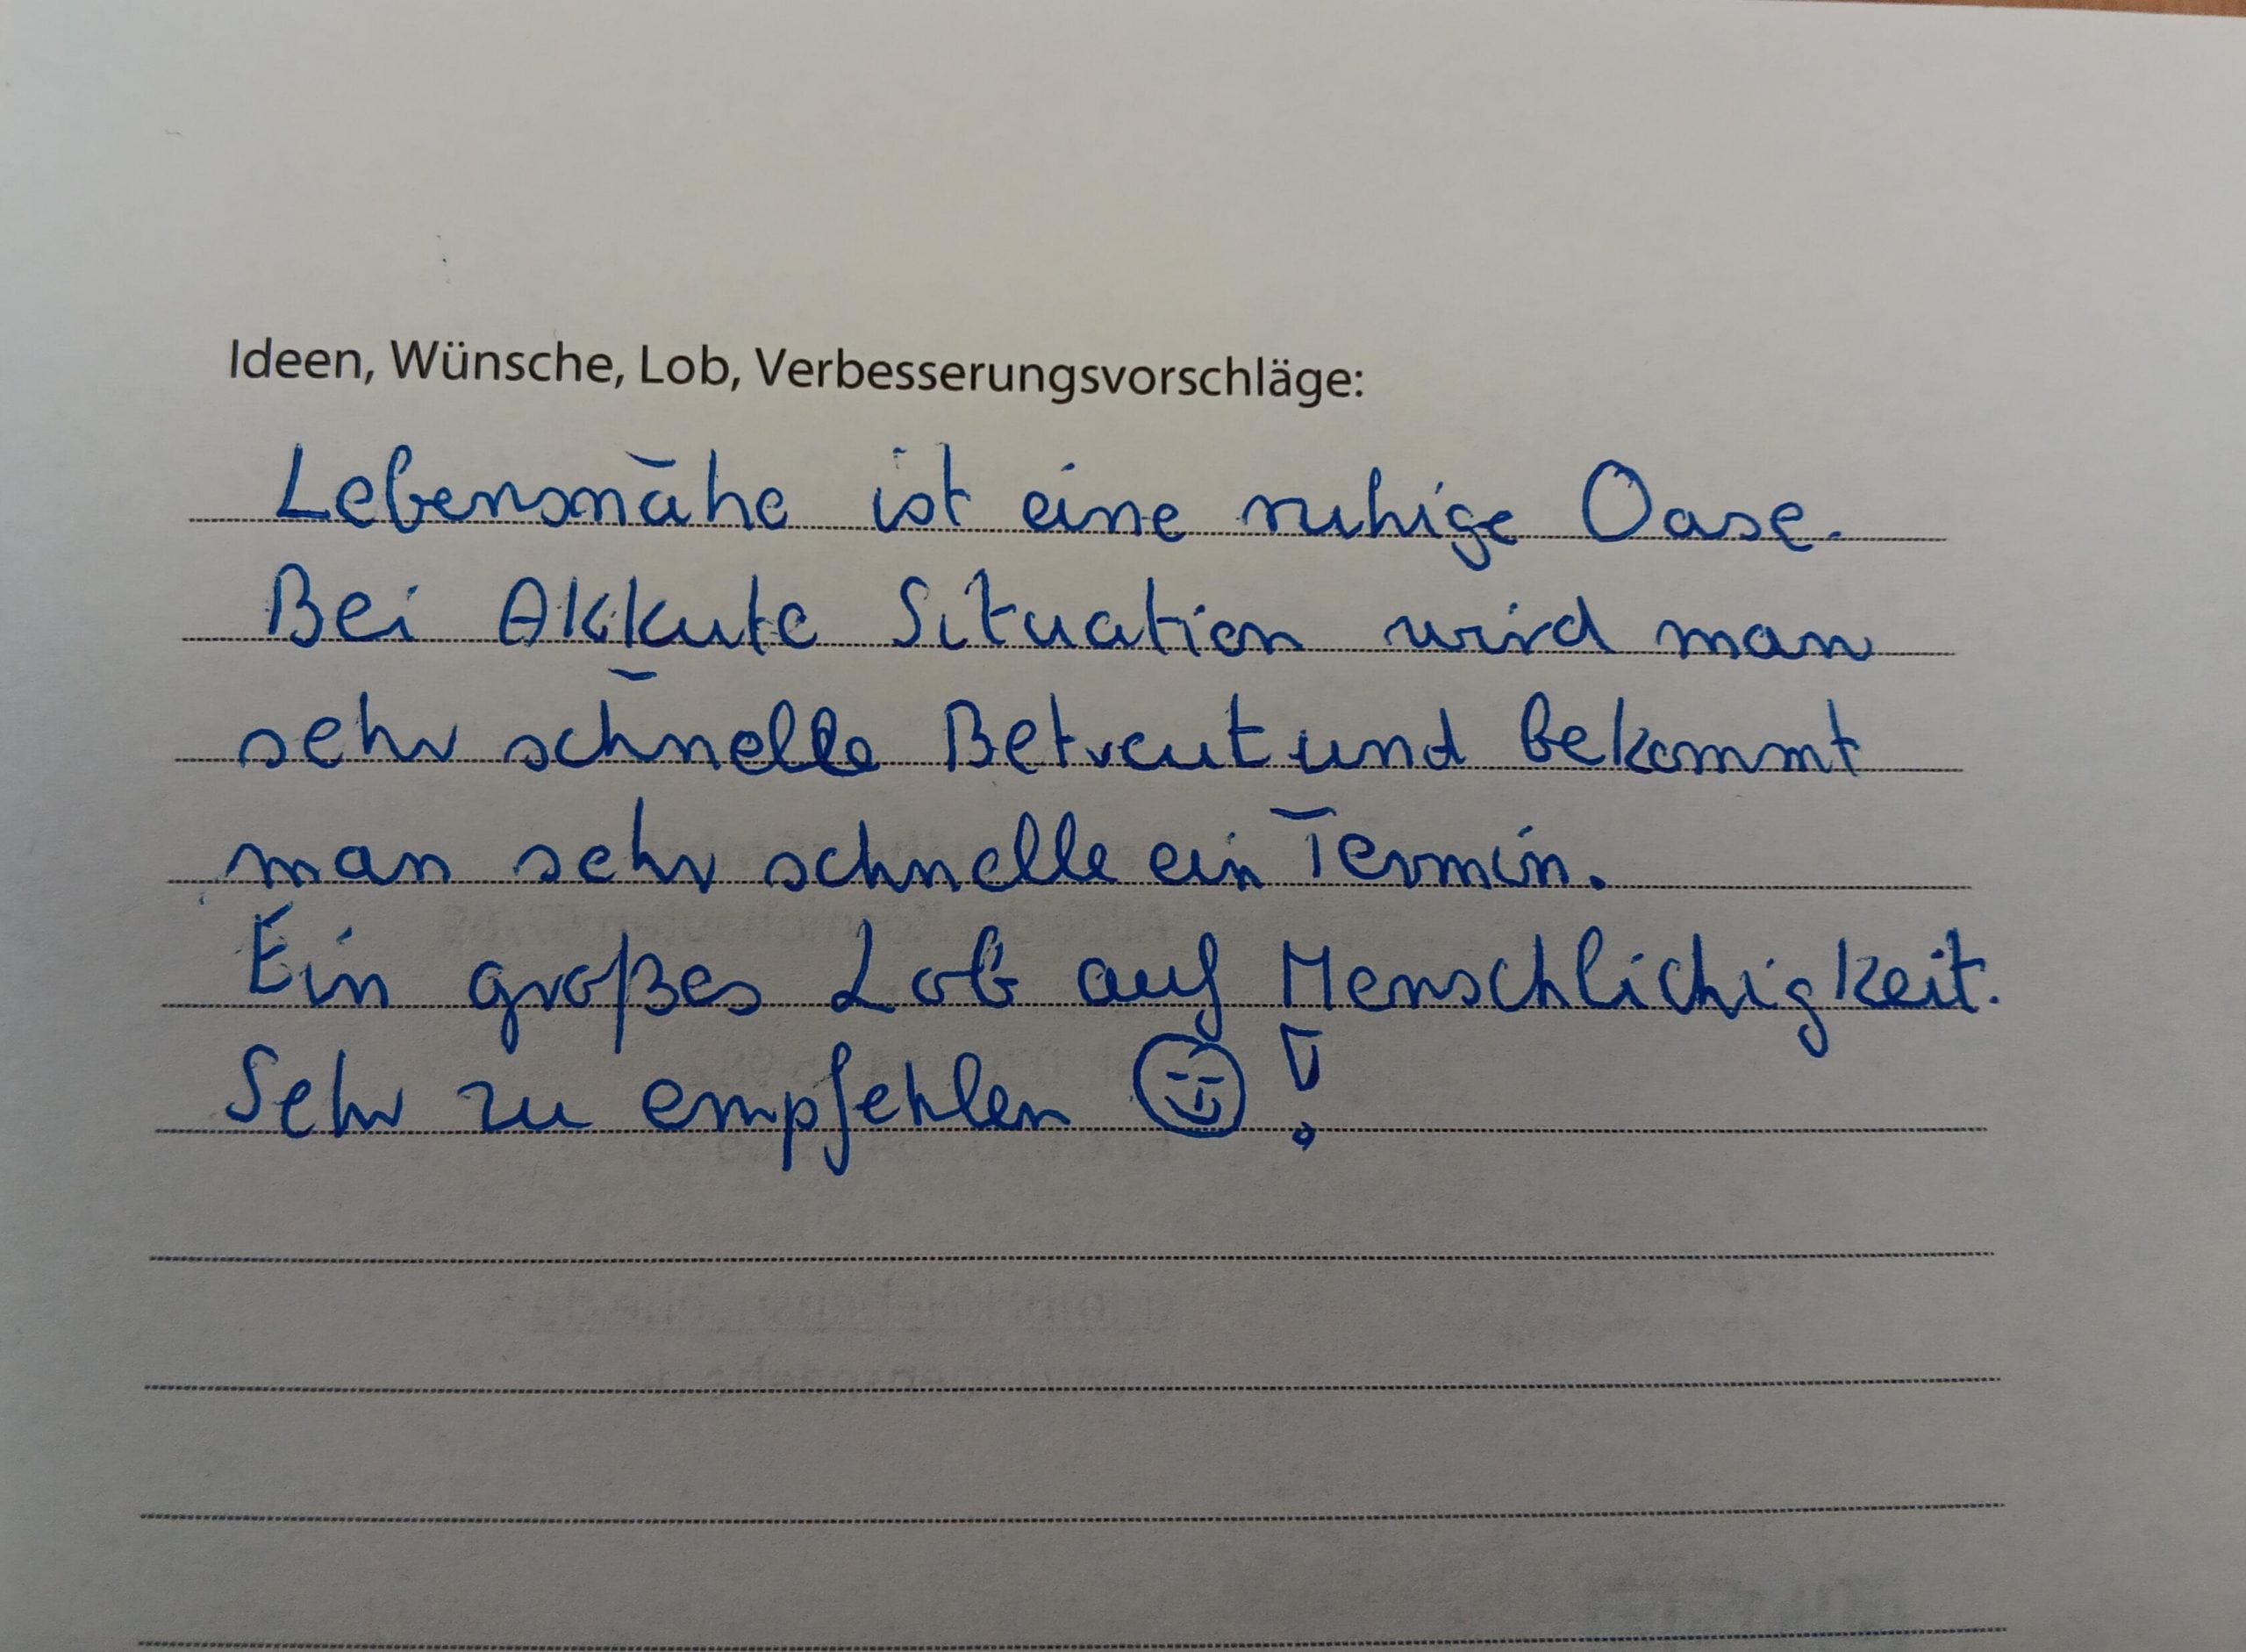 Ideen, Wünsche, Lob, Verbesserungsvorschläge:
Lebensnähe ist eine ruhige Oase.
Bei Akkute Situation wird man
sehr schnelle Betreut und bekommt
man sehr schnelle ein Termin.
Ein großes Lob auf Menschlichigkeit.
Sehr zu empfehlen ☺!